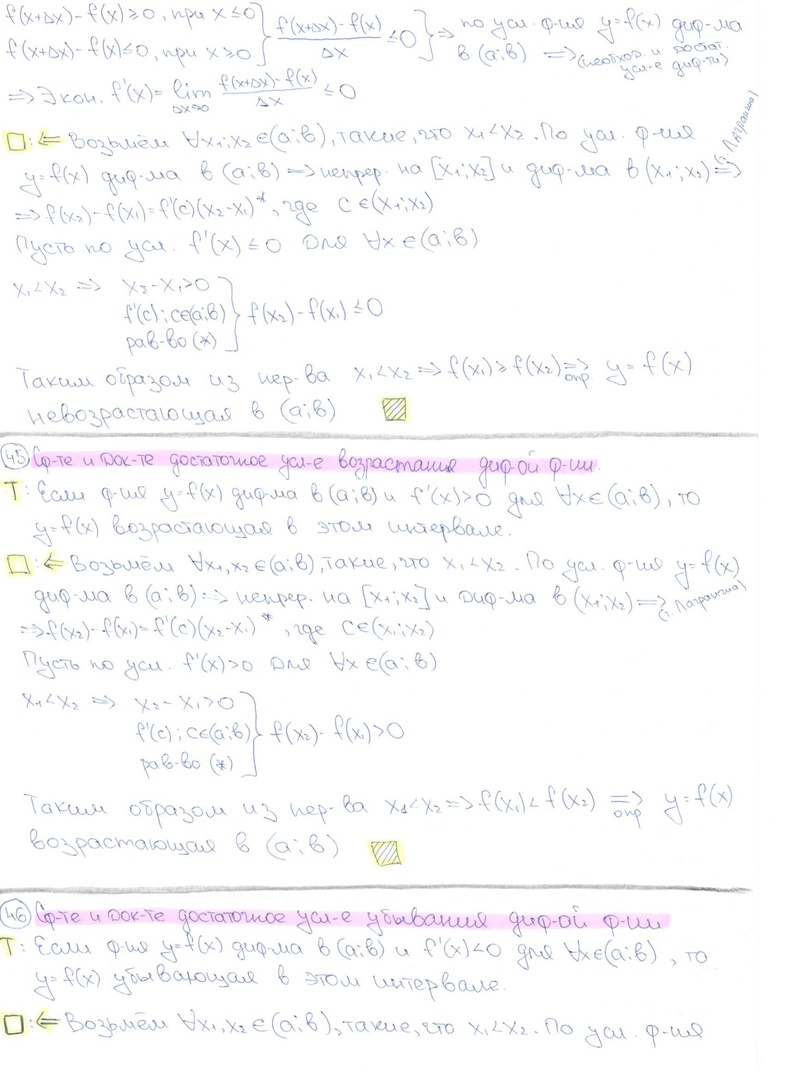 f(x+Δx)-f(x)≥0, при x≤0 } f(x+Δx)-f(x) / Δx ≤0 } ⇒ по усл. ф-ия y=f(x) диф-ма
f(x+Δx)-f(x)≤0, при x≥0 в (a;в) ⇒ (необход. и достат. усл-е диф-ти)
⇒ Э кон. f'(x)= lim Δx→0 f(x+Δx)-f(x) / Δx ≤0
□:⇐ Возьмём ∀x₁;x₂∈(a;в), такие, что x₁<x₂. По усл. ф-ия
y=f(x) диф-ма в (a;в) ⇒ непрер. на [x₁;x₂] и диф-ма в (x₁;x₂) ⇒ (т. Лагранжа)
⇒ f(x₂)-f(x₁)=f'(c)(x₂-x₁)*, где c∈(x₁;x₂)
Пусть по усл. f'(x)≤0 для ∀x∈(a;в)
x₁<x₂ ⇒ x₂-x₁>0
f'(c); c∈(a;в) } f(x₂)-f(x₁)≤0
рав-во (*)
Таким образом из нер-ва x₁<x₂ ⇒ f(x₁)≥f(x₂) ⇒ опр. y=f(x)
невозрастающая в (a;в)
45 Сф-те и док-те достаточное усл-е возрастания диф-ой ф-ии.
Т: Если ф-ия y=f(x) диф-ма в (a;в) и f'(x)>0 для ∀x∈(a;в), то
y=f(x) возрастающая в этом интервале.
□:⇐ Возьмём ∀x₁,x₂∈(a;в), такие, что x₁<x₂. По усл. ф-ия y=f(x)
диф-ма в (a;в) ⇒ непрер. на [x₁;x₂] и диф-ма в (x₁;x₂) ⇒ (т. Лагранжа)
⇒ f(x₂)-f(x₁)=f'(c)(x₂-x₁)*, где c∈(x₁;x₂)
Пусть по усл. f'(x)>0 для ∀x∈(a;в)
x₁<x₂ ⇒ x₂-x₁>0
f'(c); c∈(a;в) } f(x₂)-f(x₁)>0
рав-во (*)
Таким образом из нер-ва x₁<x₂ ⇒ f(x₁)<f(x₂) ⇒ опр y=f(x)
возрастающая в (a;в)
46 Сф-те и док-те достаточное усл-е убывания диф-ой ф-ии
Т: Если ф-ия y=f(x) диф-ма в (a;в) и f'(x)<0 для ∀x∈(a;в), то
y=f(x) убывающая в этом интервале.
□:⇐ Возьмём ∀x₁,x₂∈(a;в), такие, что x₁<x₂. По усл. ф-ия